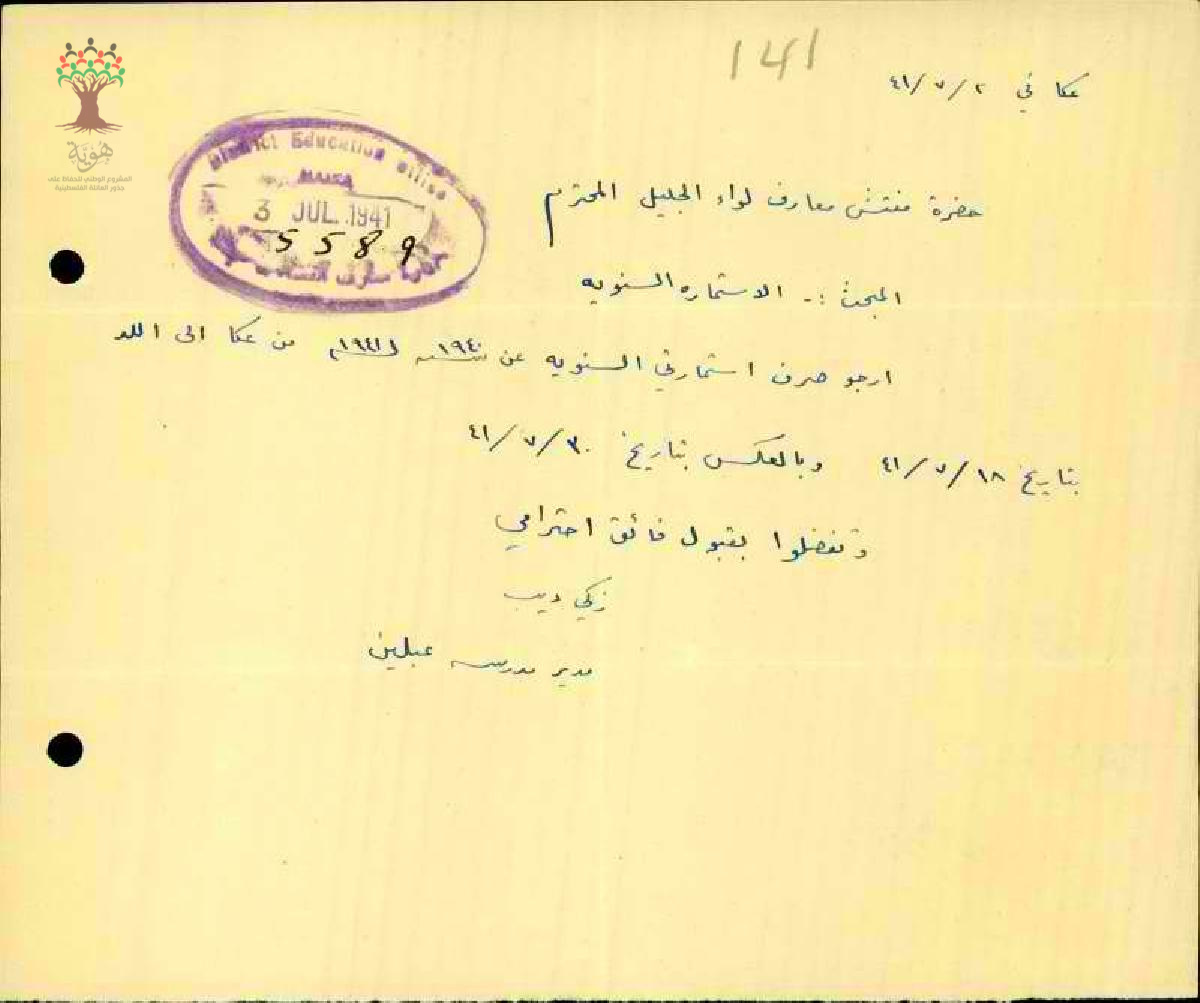 141
عكا في ٢/٧/٤١
هوية
المشروع الوطني للحفاظ على
جذور العائلة الفلسطينية
District Education Office
HAIFA
3 JUL 1941
5589
حضرة مفتش معارف لواء الجليل المحترم
المبحث :- الاستماره السنويه
ارجو صرف استمارتي السنويه عن سنه ١٩٤٠ من عكا الى اللد
بتاريخ ١٨/٧/٤١ وبالعكس بتاريخ ٣٠/٧/٤١
وتفضلوا بقبول فائق احترامي
زكي ديب
مدير مدرسه عبلين